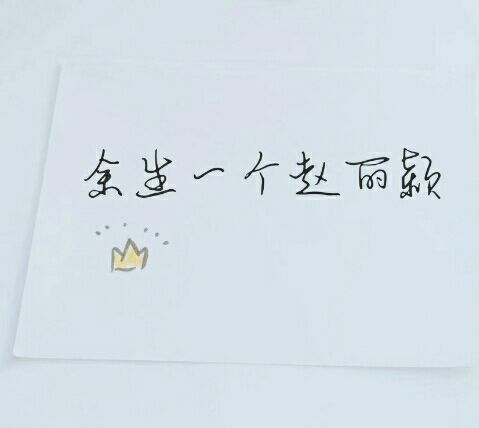 余生一个赵丽颖